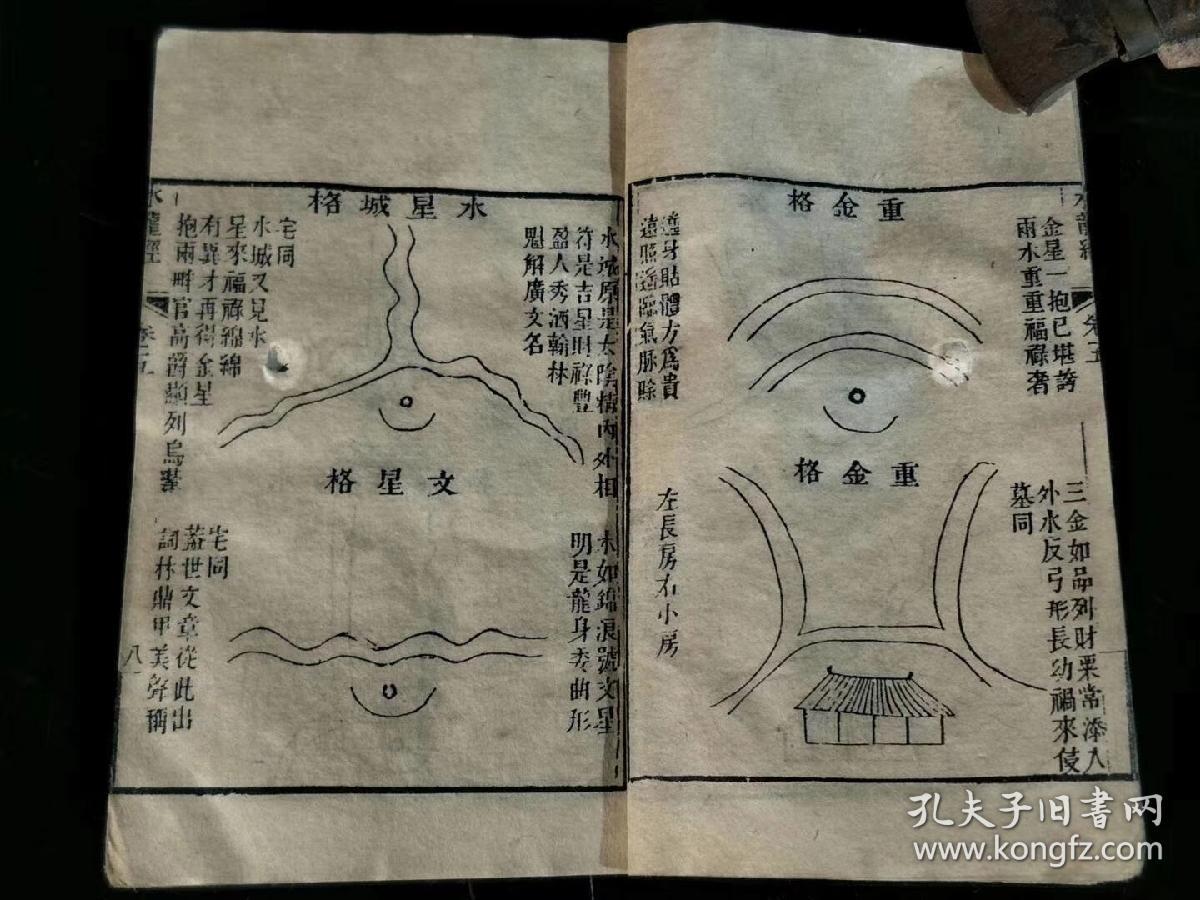 重金格
金星一抱已堪誇
兩水重重福祿奢
邊身貼體方爲貴
遠照遙臨氣脉賒
重金格
三金如品列財粟常添入
外水反弓形長幼禍來侵
墓同
左長房右小房
水星城格
水城原是太陰精內外相
符是吉星財祿豐
盈人秀洒翰林
魁解廣文名
宅同
水城又見水
星來福祿綿綿
有異才再得金星
抱兩畔官高爵顯列烏臺
文星格
水如錦浪號文星
明是龍身委曲形
宅同
蓋世文章從此出
詞林鼎甲美聲稱
水龍經
卷五
八
水龍經
卷五
孔夫子旧书网
www.kongfz.com